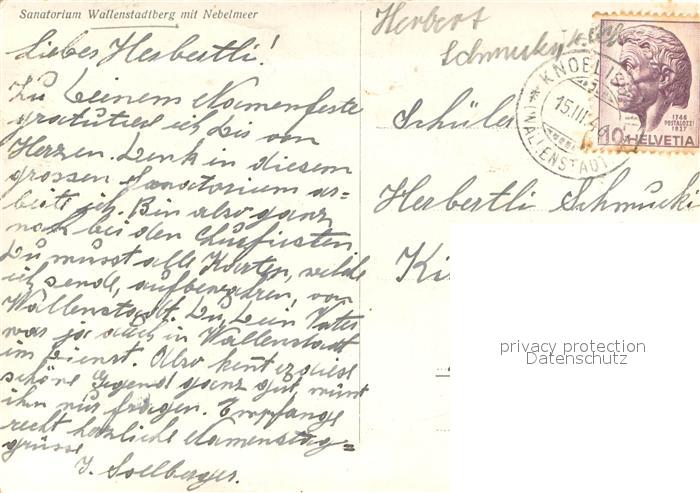 Sanatorium Wallenstadtberg mit Nebelmeer
Liebes Herbertli!
Zu Deinem Namensfeste
gratuliere ich Dir von
Herzen. Denk in diesem
grossen Sanatorium ar=
beite ich. Bin also ganz
nach bei den Churfirsten
Du musst alle Karten, welche
ich sende, aufbewahren, von
Wallenstadt. Du, Dein Vater
war ja auch in Wallenstadt
im Dienst. Also kennt er diese
schöne Gegend ganz gut, musst
ihn nur fragen. Empfange
recht herzliche Namenstag=
grüsse
J. Sollberger.
Herbert
Schmucky
KNOELIS
15.III.4
WALLENSTADT
1746
PESTALOZZI
1827
10 HELVETIA
Schüler
Herbertli Schmucki
Ki
privacy protection
Datenschutz